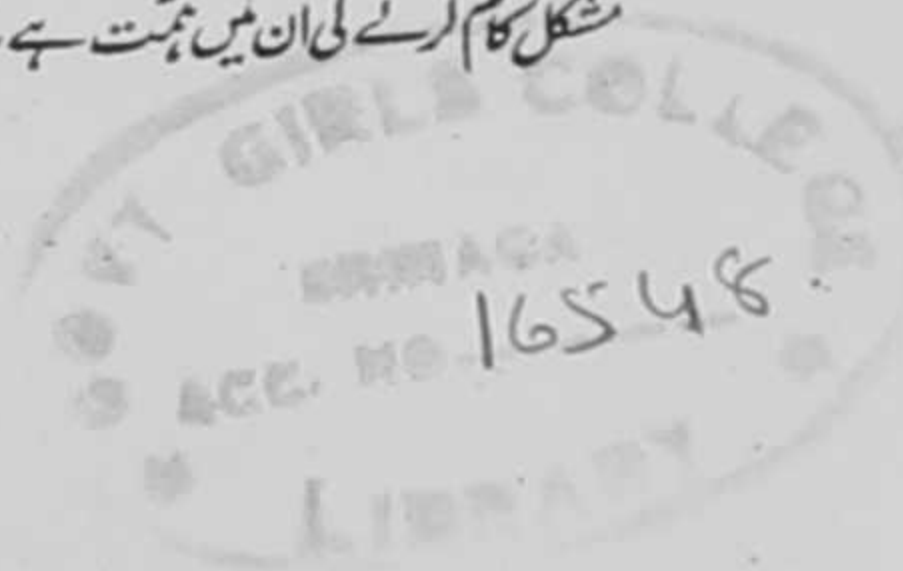 مشکل کام کرنے کی ان میں ہمت ہے۔
GOVT GIRLS COLLEGE
ACC. NO 16548.
LIBRARY